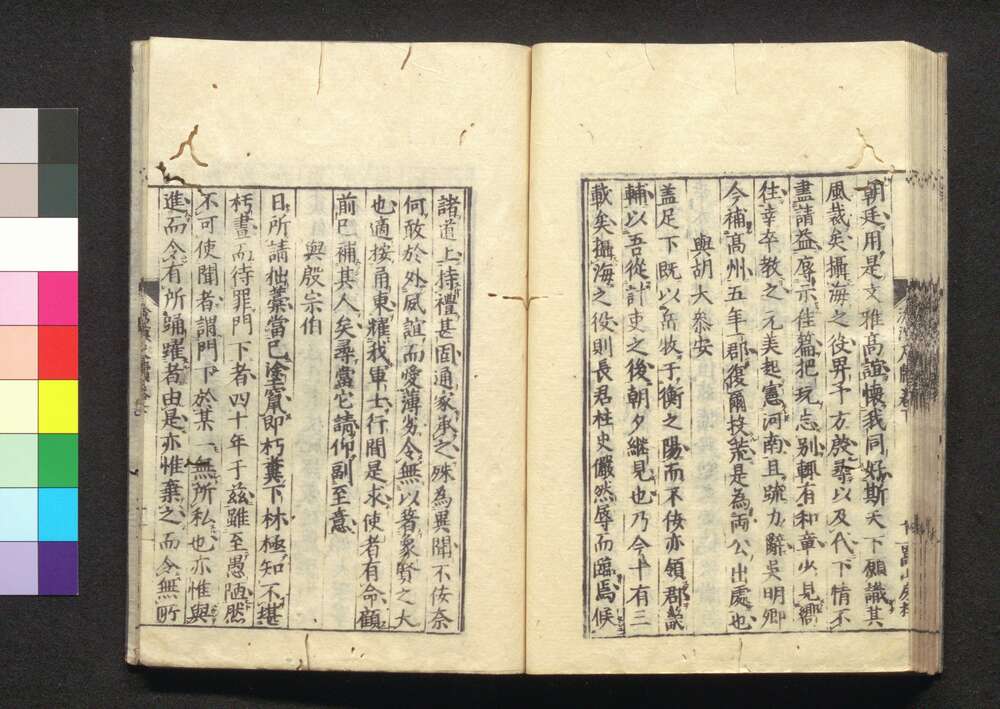 朝廷用是文雅高誼懷我同好斯天下願識其
風裁矣攝海之役畀千方
盡請益辱示佳篇把玩忘別輒有和章少見鄉
往幸卒教之元美起憲河南且疏力辭吳明卿
今補高州五年郡復爾投荒是為兩公出處也
與胡大參安
蓋足下既以
牧于衡之陽而不佞亦領郡
輔以吾從計吏之後朝夕繼見也乃今十有三
載矣攝海之役則長君柱史儼然辱而臨焉候
諸道上持禮甚固通家承之殊為異聞不佞奈
何敢於外威誼而愛薄劣令無以著象賢之大
也適按甬東耀我車士行間是求使者有命顧
前已補其人矣尋當它請仰副至意
與殷宗伯
日所請拙藁當已塗竄即朽糞下材極知不堪
朽畫而待罪門下者四十年于茲雖至愚陋然
不可使聞者謂門下於某一無所私也亦惟與
進而令有所踊躍者由是亦惟棄之而令無所